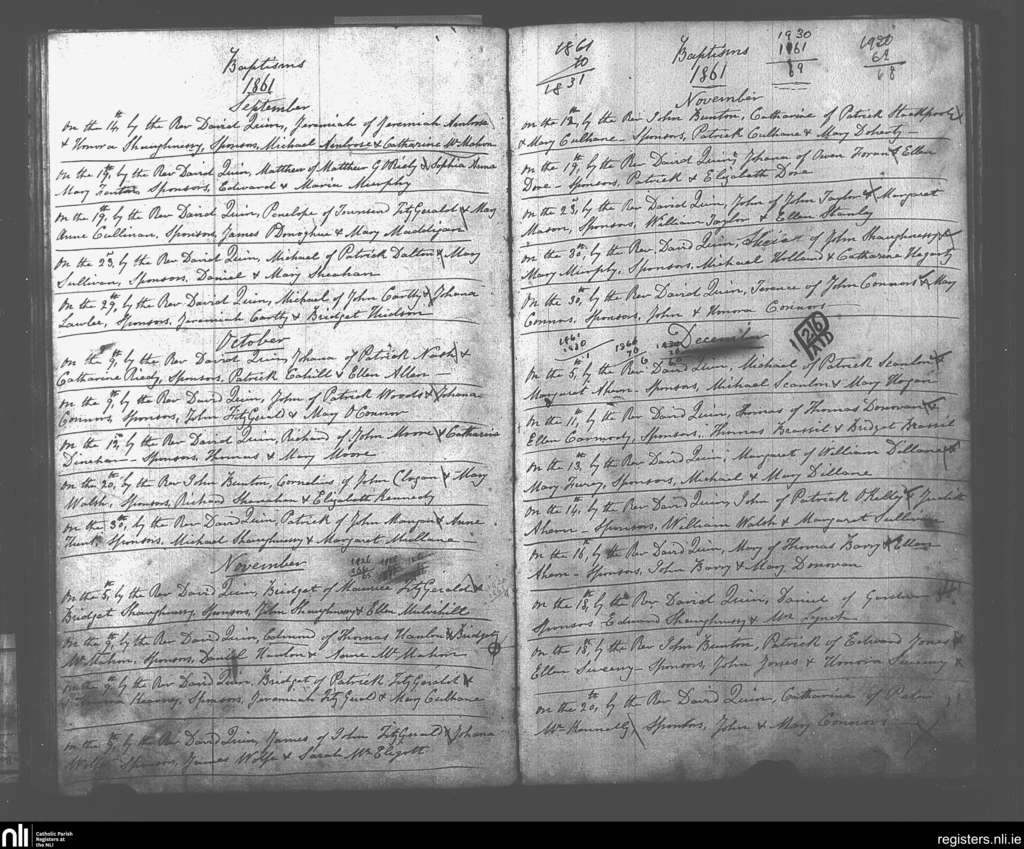 Baptisms
1861
September
On the 14th, by the Rev David Quin, Jeremiah of Jeremiah
& Honora Shaughnessy, Sponsors, Michael & Catharine McMahon
On the 19th, by the Rev David Quin, Matthew of Matthew & Sophia Anna
Mary Sponsors, Edward & Maria Murphy
On the 19th, by the Rev David Quin, Penelope of Townsend FitzGerald & Mary
Anne Cullinan, Sponsors, James O'Donoghue & Mary Maddigan
On the 23, by the Rev David Quin, Michael of Patrick Dalton & Mary
Sullivan, Sponsors, Daniel & Mary Sheahan
On the 29th, by the Rev David Quin, Michael of John Carthy & Johana
Lawler, Sponsors, Jeremiah Carthy & Bridget
October
On the 9th, by the Rev David Quin, Johana of Patrick Nash &
Catharine Riedy, Sponsors, Patrick Cahill & Ellen Allen
On the 9th, by the Rev David Quin, John of Patrick Woods & Johana
Connors, Sponsors, John FitzGerald & Mary O'Connor
On the 12th, by the Rev David Quin, Richard of John Moore & Catharine
Dinehan - Sponsors, Thomas & Mary Moore
On the 20, by the Rev John Bunton, Cornelius of John Clogan & Mary
Walsh, Sponsors, Richard Shanahan & Elizabeth Kennedy
On the 30th, by the Rev David Quin, Patrick of John Mangan & Anne
Hunt Sponsors, Michael Shaughnessy & Margaret Mullane
November
On the 5th, by the Rev David Quin, Bridget of Maurice FitzGerald &
Bridget Shaughnessy Sponsors, John Shaughnessy & Ellen Mulvihill
On the 9th, by the Rev David Quin, Edmund of Thomas Hanlon & Bridget
McMahon, Sponsors, Daniel Hanlon & Anne McMahon
On the 9th, by the Rev David Quin, Bridget of Patrick FitzGerald &
Kearney, Sponsors, Jeremiah FitzGerald & Mary Culhane
On the by the Rev David Quin, James of John FitzGerald & Johana
Wolfe, Sponsors, James Wolfe & Sarah McEligott
1861
70
1831
Baptisms
1861
1930
1861
69
1930
62
68
November
On the 12th, by the Rev John Bunton, Catharine of Patrick Hackpole
& Mary Culhane - Sponsors, Patrick Culhane & Mary Doherty
On the 19th, by the Rev David Quin, Johana of Owen Foran & Ellen
Dore - Sponsors, Patrick & Elizabeth Dore
On the 23, by the Rev David Quin, John of John Taylor & Margaret
Mason, Sponsors, William Taylor & Ellen Stanly
On the 30th, by the Rev David Quin, of John Shaughnessy &
Mary Murphy, Sponsors, Michael Holland & Catharine Hogarty
On the 30th, by the Rev David Quin, Terence of John Connors & Mary
Connors, Sponsors, John & Honora Connors
December
1861
1930
1360
70
126
On the 5th, by the Rev David Quin, Michael of Patrick Scanlon &
Margaret Ahern - Sponsors, Michael Scanlon & Mary Hogan
On the 11th, by the Rev David Quin, Thomas of Thomas Donovan &
Ellen Carmody, Sponsors, Thomas Brassil & Bridget Brassil
On the 13th, by the Rev David Quin, Margaret of William Dillane &
Mary Furey, Sponsors, Michael & Mary Dillane
On the 14th, by the Rev David Quin, John of Patrick O'Kelly & Judith
Ahern - Sponsors, William Walsh & Margaret Sullivan
On the 16th, by the Rev David Quin, Mary of Thomas Barry & Ellen
Ahern - Sponsors, John Barry & Mary Donovan
On the 18, by the Rev David Quin, Daniel of
Sponsors Edward Shaughnessy & Mrs Lynch
On the 18, by the Rev John Bunton, Patrick of Edward Jones &
Ellen Sweeny - Sponsors, John Jones & Honora Sweeny
On the 20th, by the Rev David Quin, Catharine of Peter
McKennelly Sponsors, John & Mary Connors
nli
Catholic Parish
Registers at
the NLI
registers.nli.ie